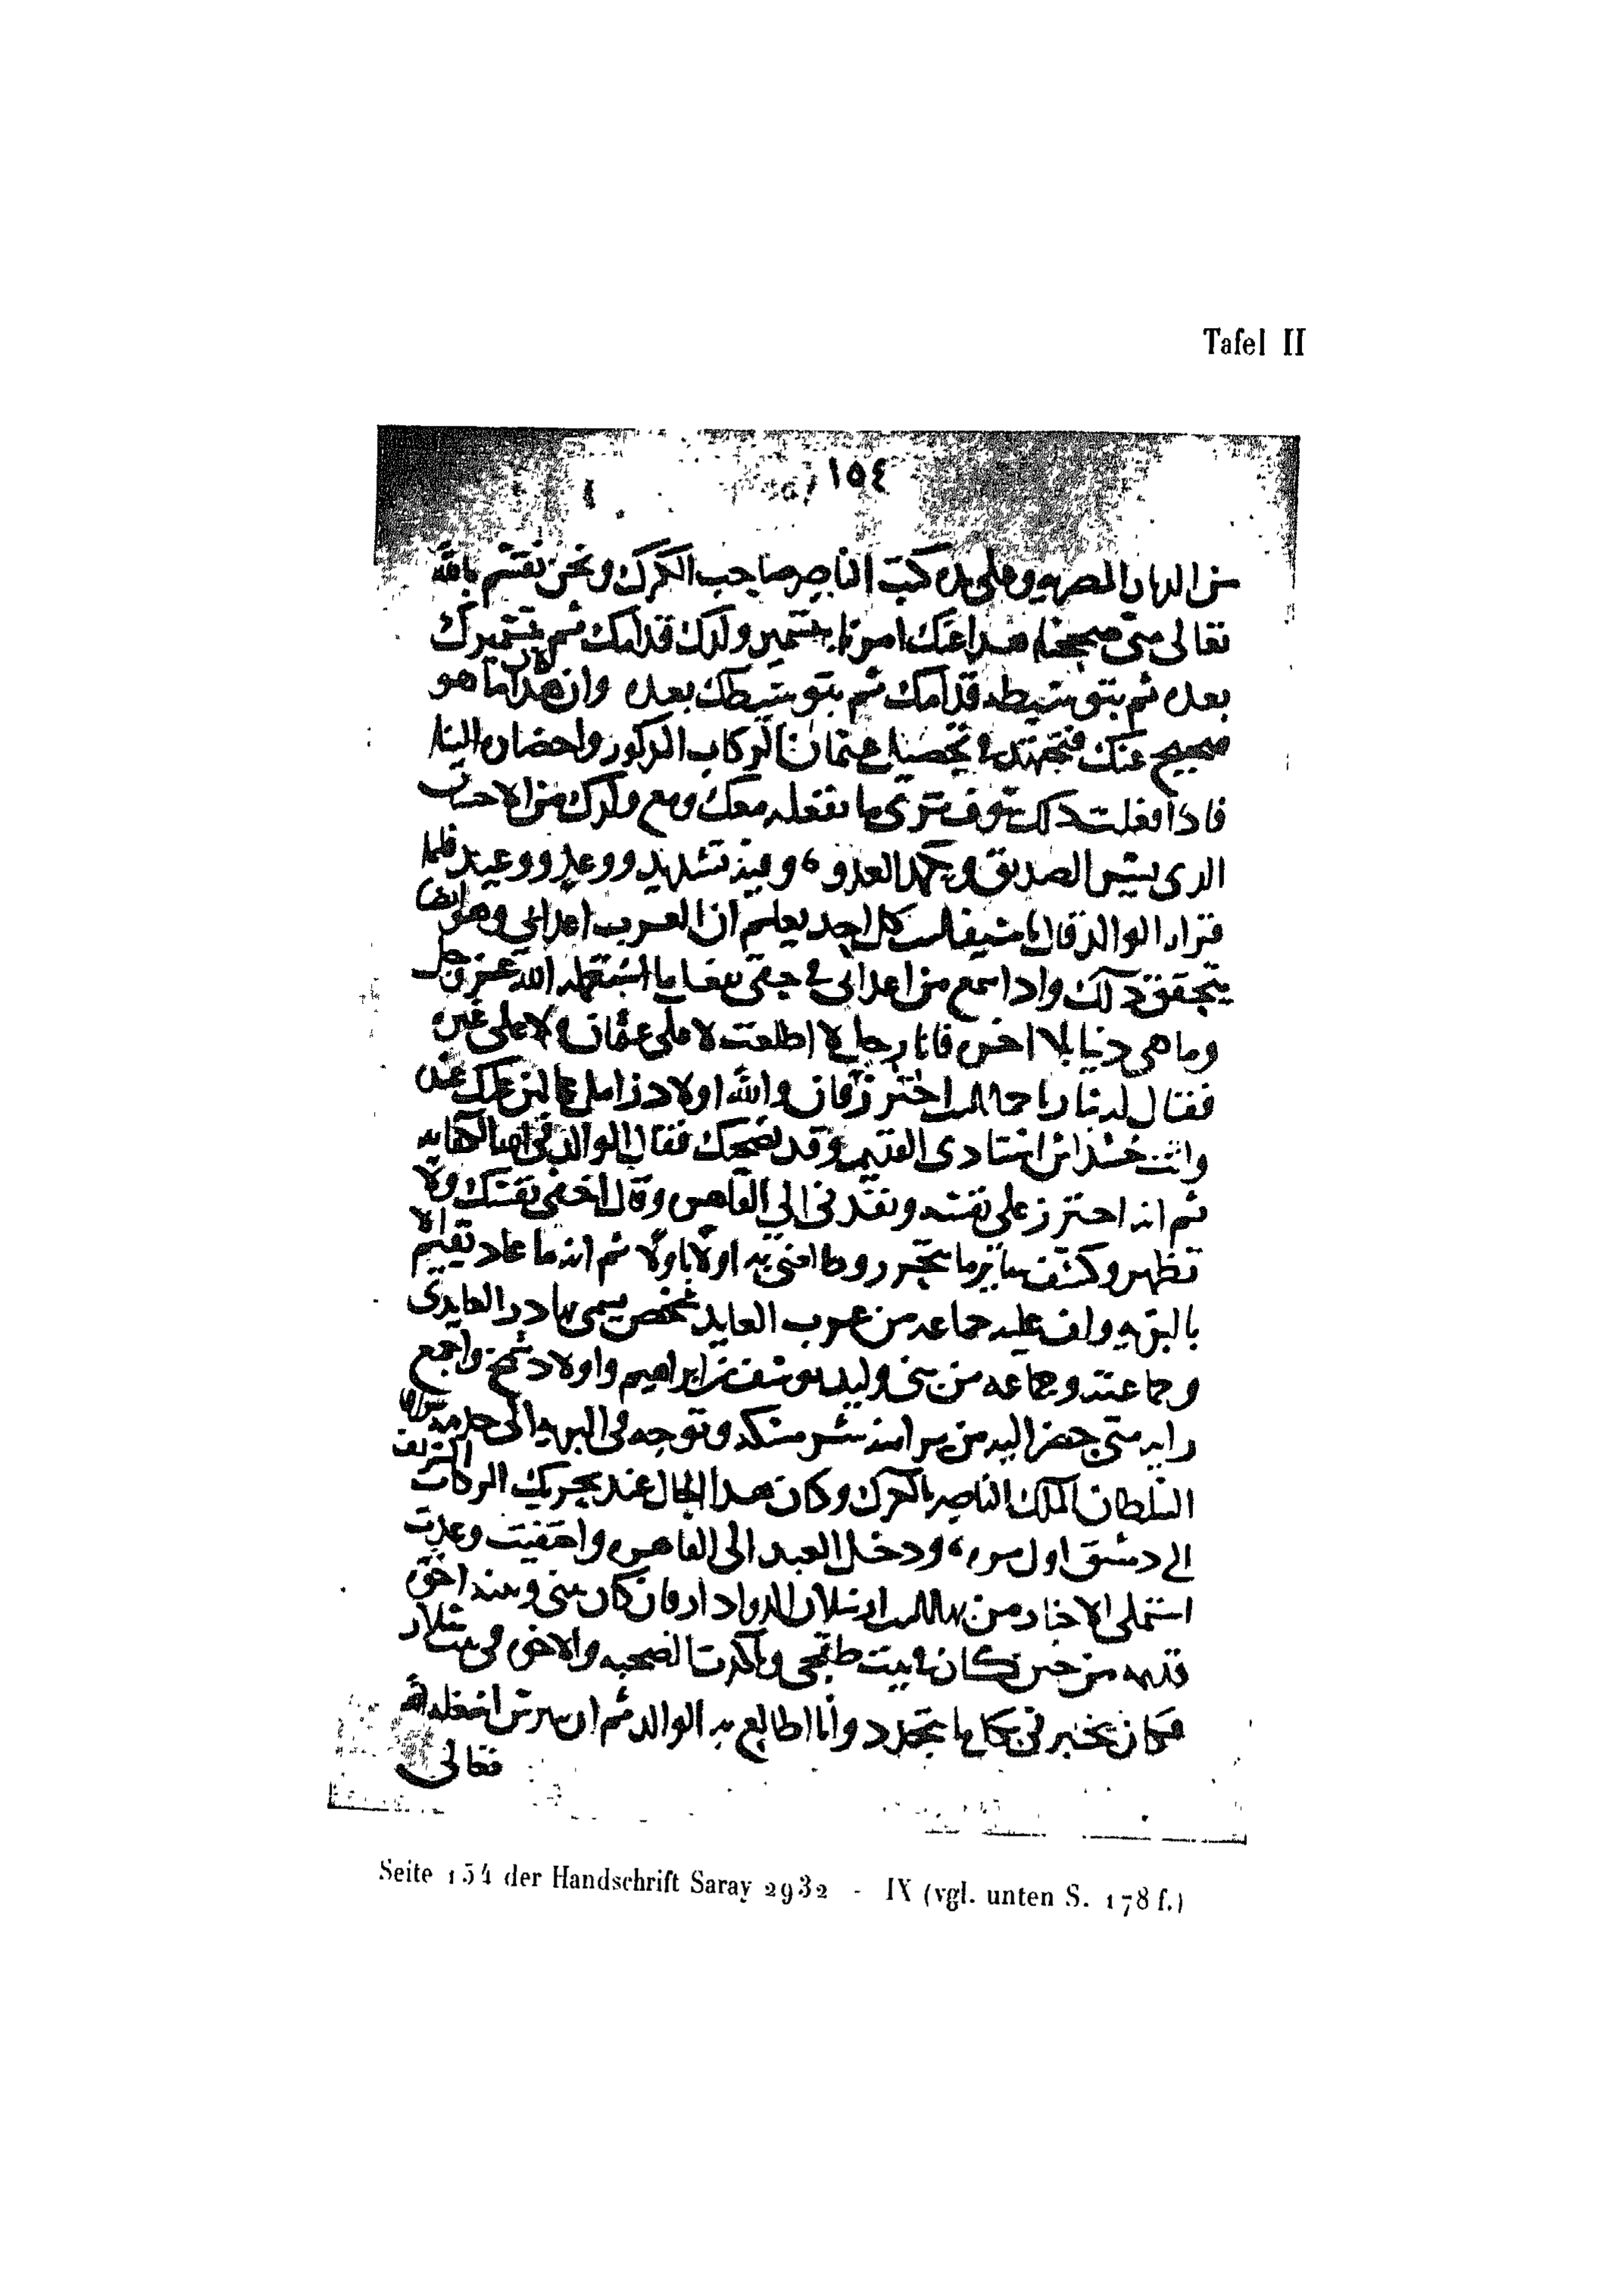 Tafel II
١٥٤
من الديار المصريه وعلى يده كتب الناصر صاحب الكرك ونحن نقسم بالله
تعالى متى صح هدا عنك امرنا بتسمير ولدك قدامك ثم بتسميرك
بعده ثم بتوسيطه قدامك ثم بتوسيطك بعده وان كان هدا ما هو
صحيح عنك فتجتهد في تحصيل عثمان الركاب المدكور واحضاره الينا
فادا فعلت دلك سوف ترى ما نفعله معك ومع ولدك من الاحسان
الدى يسر الصديق ويكمد العدو ، وفيه تشديد ووعد ووعيد فلما
قراه الوالد قال يا سيف كل احد يعلم ان العرب اعداى وهو ايضا
يتحقق دلك وادا سمع من اعداى في حقى فعا ما استعمله الله عز وجل
وما هى دنيا بلا اخره فانا رجل لا اطلعت لا على عثمان ولا على غيره
فقال له احترز فان والله اولاد زامل عند
وانت خشداش استادى القديم وقد نصحتك فقال الوالد في الله الكفايه
ثم انه احترز على نفسه ونفدنى الى القاهره وقال اخفى نفسك ولا
تظهر وكشف ساير ما يتجدد وطالعنى به اولا باولا ثم انه ما عاد يقيم الا
بالبريه ولف عليه جماعه من عرب العايد شخص يسمى بادر العايدى
وجماعته وجماعه من بنى وليد يوسف بن ابراهيم واولاد شمخ واجمع
رايه متى حضر اليه من يرا منه شر مسكه وتوجه في البريه الى خدمة مولانا
السلطان الملك الناصر بالكرك وكان هدا الحال عند تحريك الركاب الشريف
الى دمشق اول مره ، ودخل العبد الى القاهره واختفيت وعدت
استملى الاخبار من ارسلان الدوادار فان كان بينى وبينه اخوه
قديمه من حين كان في بيت طقجى وتاكدت الصحبه والاخوه في بيت سلار
فكان يخبرنى بكل ما يتجدد وانا اطالع به الوالد ثم ان بيبرس اشغله الله
تعالى
Seite 154 der Handschrift Saray 2932 - IX (vgl. unten S. 178 f.)